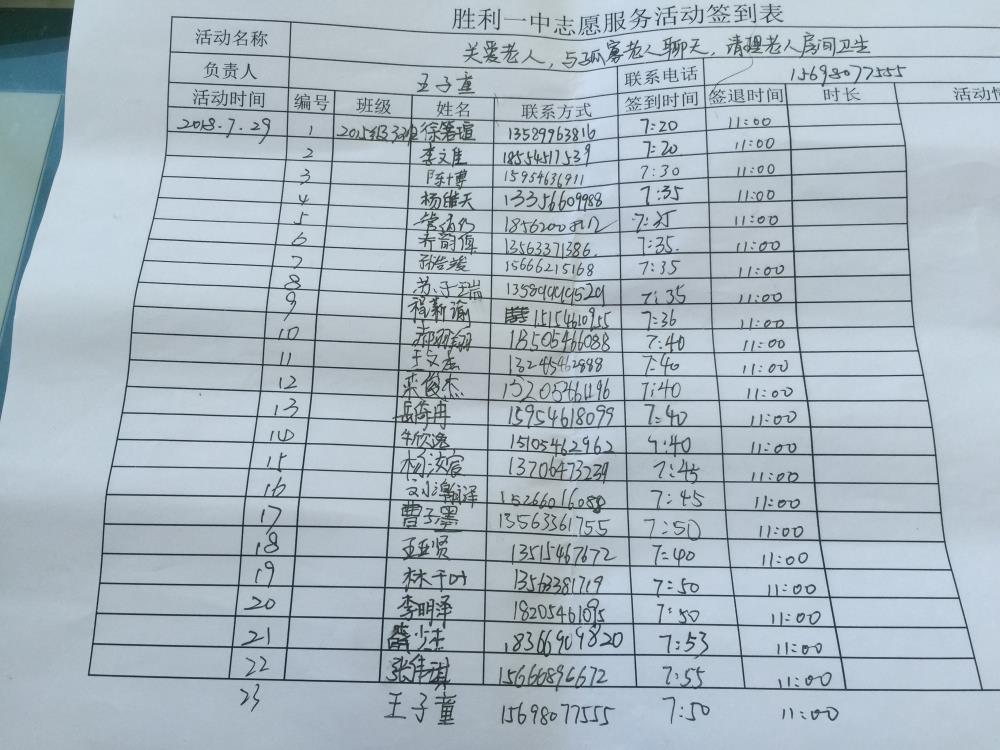 胜利一中志愿服务活动签到表
活动名称 关爱老人，与孤寡老人聊天，清理老人房间卫生
负责人 王子童 联系电话 15698077555
活动时间 编号 班级 姓名 联系方式 签到时间 签退时间 时长 活动情
2018.7.29 1 2015级33班 徐箬瑄 13589963816 7:20 11:00
2 李文佳 18554517539 7:20 11:00
3 陈博 15954636911 7:30 11:00
4 杨继天 13356609988 7:35 11:00
5 7:35 11:00
6 乔韵倬 13563371386 7:35 11:00
7 15666215168 7:35 11:00
8 苏子瑞 13589999529 7:35 11:00
9 程新谕 15154610955 7:36 11:00
10 13505466088 7:40 11:00
11 王文杰 13245462888 7:40 11:00
12 栾俊杰 15205461196 7:40 11:00
13 岳倚冉 15954618099 7:40 11:00
14 牛欣逸 15105462962 7:40 11:00
15 杨洪宸 13706473239 7:45 11:00
16 15266016088 7:45 11:00
17 曹子墨 13563361755 7:50 11:00
18 王亚贤 13515467672 7:40 11:00
19 林千叶 13563381719 7:50 11:00
20 李明泽 18205461095 7:50 11:00
21 18366909820 7:53 11:00
22 张隼琪 15666896672 7:55 11:00
23 王子童 15698077555 7:50 11:00